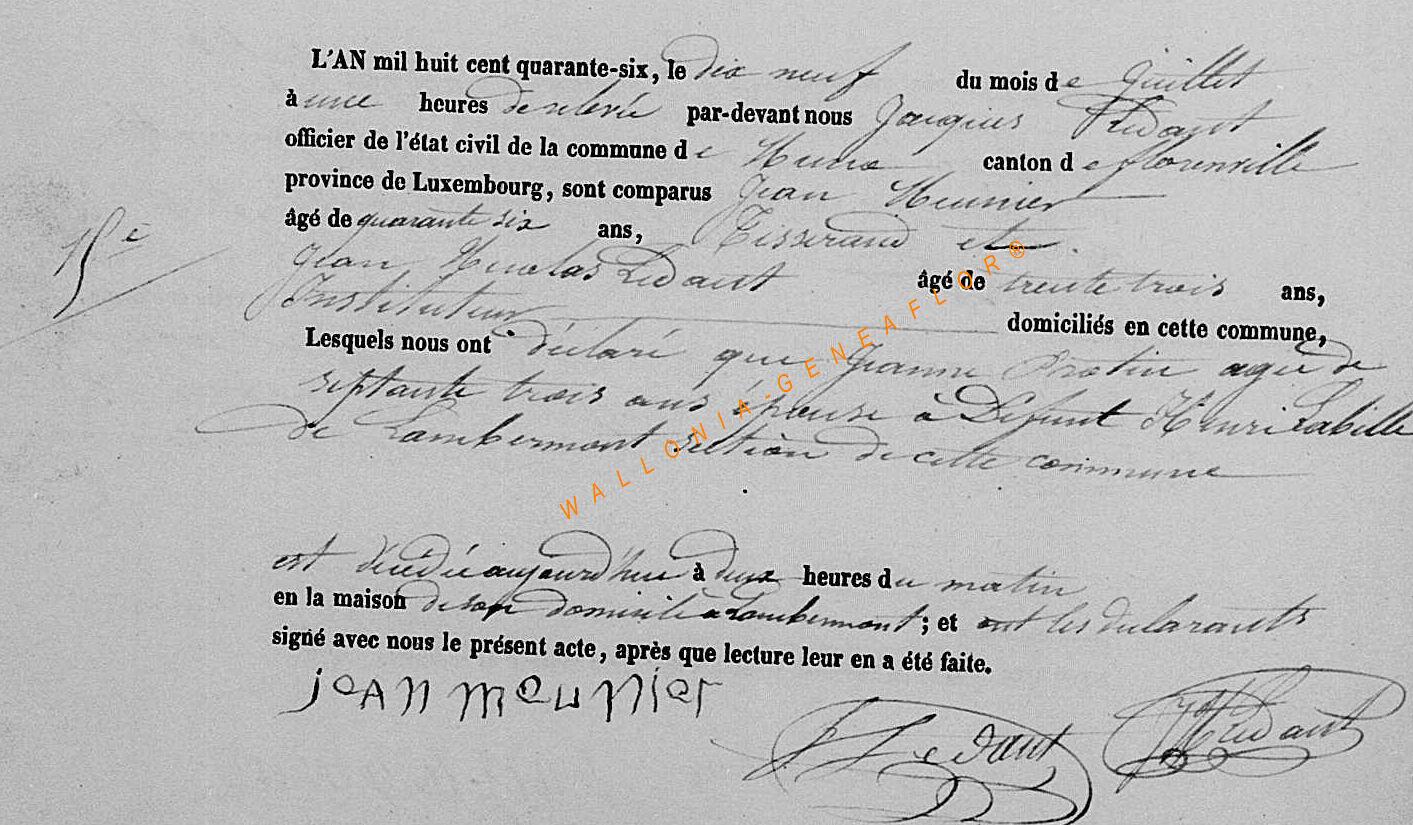 L'AN mil huit cent quarante-six, le dix neuf du mois de Juillet
à une heures de relevée par-devant nous Jacques Ledant
officier de l'état civil de la commune de Muno canton de florenville
province de Luxembourg, sont comparus Jean Meunier
âgé de quarante six ans, Tisserand et
15e
Jean Nicolas Ledant âgé de trente trois ans,
Instituteur domiciliés en cette commune,
Lesquels nous ont déclaré que Jeanne Protin agée de
septante trois ans épouse à Défunt Henri Labille
de Lambermont section de cette commune
est décédée aujourd'hui à deux heures du matin
en la maison de son domicile à Lambermont; et ont les déclarants
signé avec nous le présent acte, après que lecture leur en a été faite.
jean meunier
Ledant
Ledant
WALLONIA-GENEAFLOR®